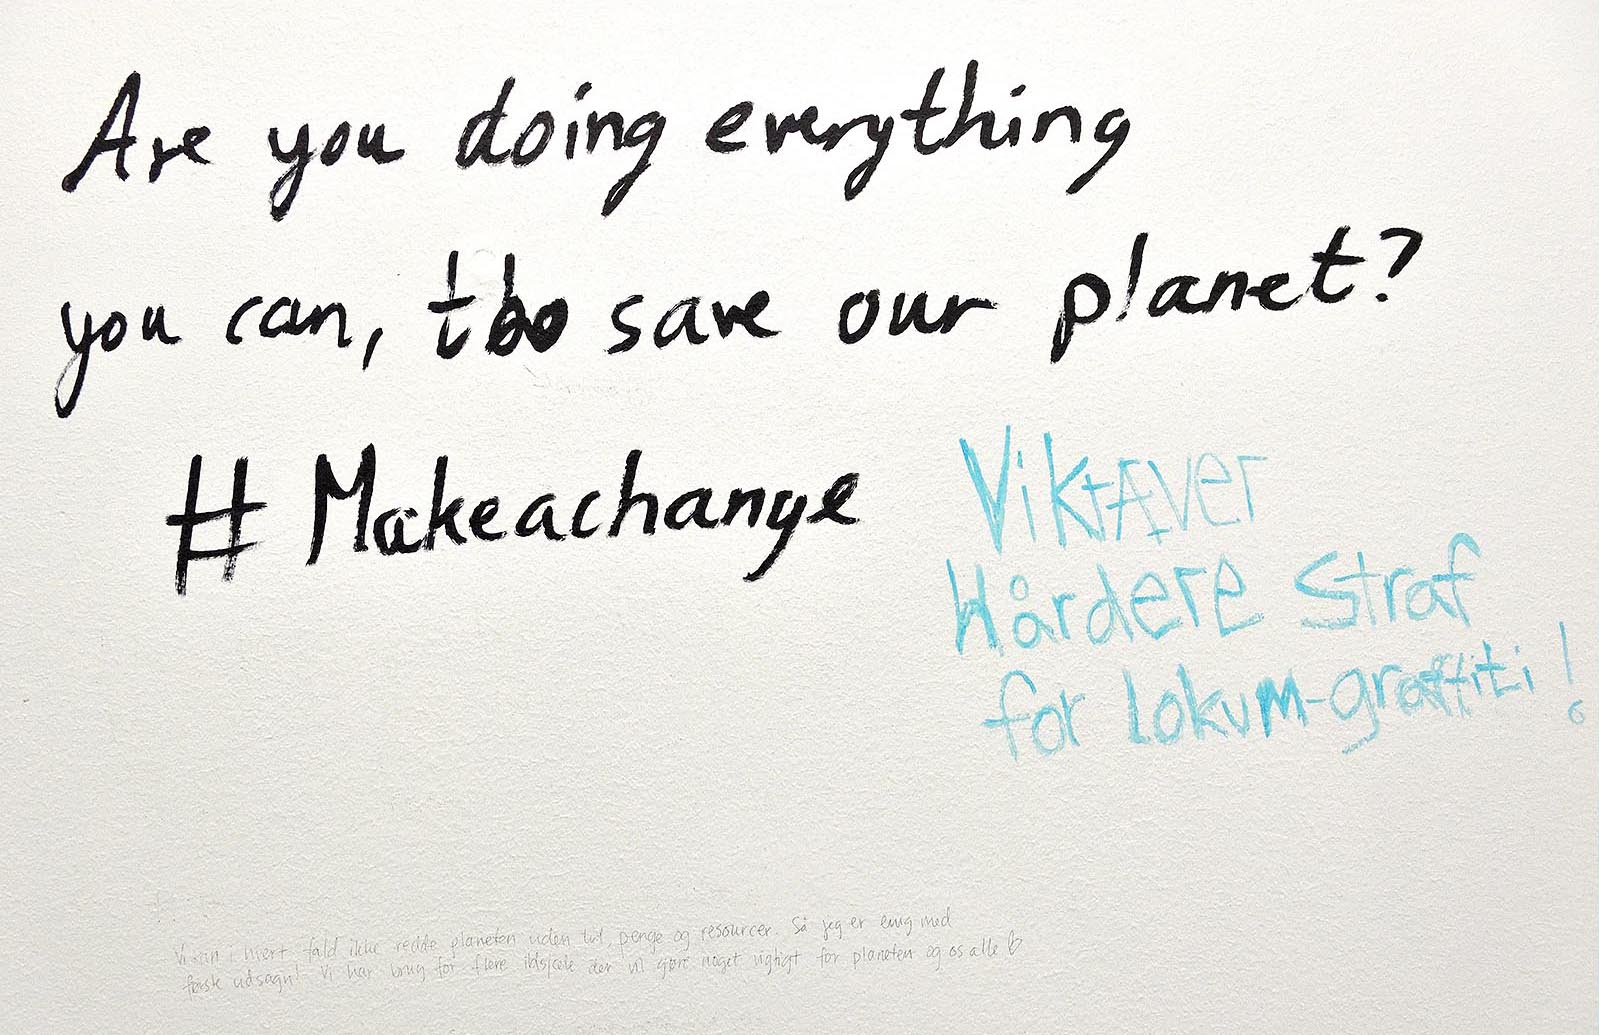 Are you doing everything
you can, to save our planet?
# Makeachange
Vi kræver
Hårdere Straf
for lokum-graffiti!
Vi kan i hvert fald ikke redde planeten uden tid, penge og resourcer. Så jeg er enig med
første udsagn! Vi har brug for flere ildsjæle der vil gøre noget vigtigt for planeten og os alle ♡